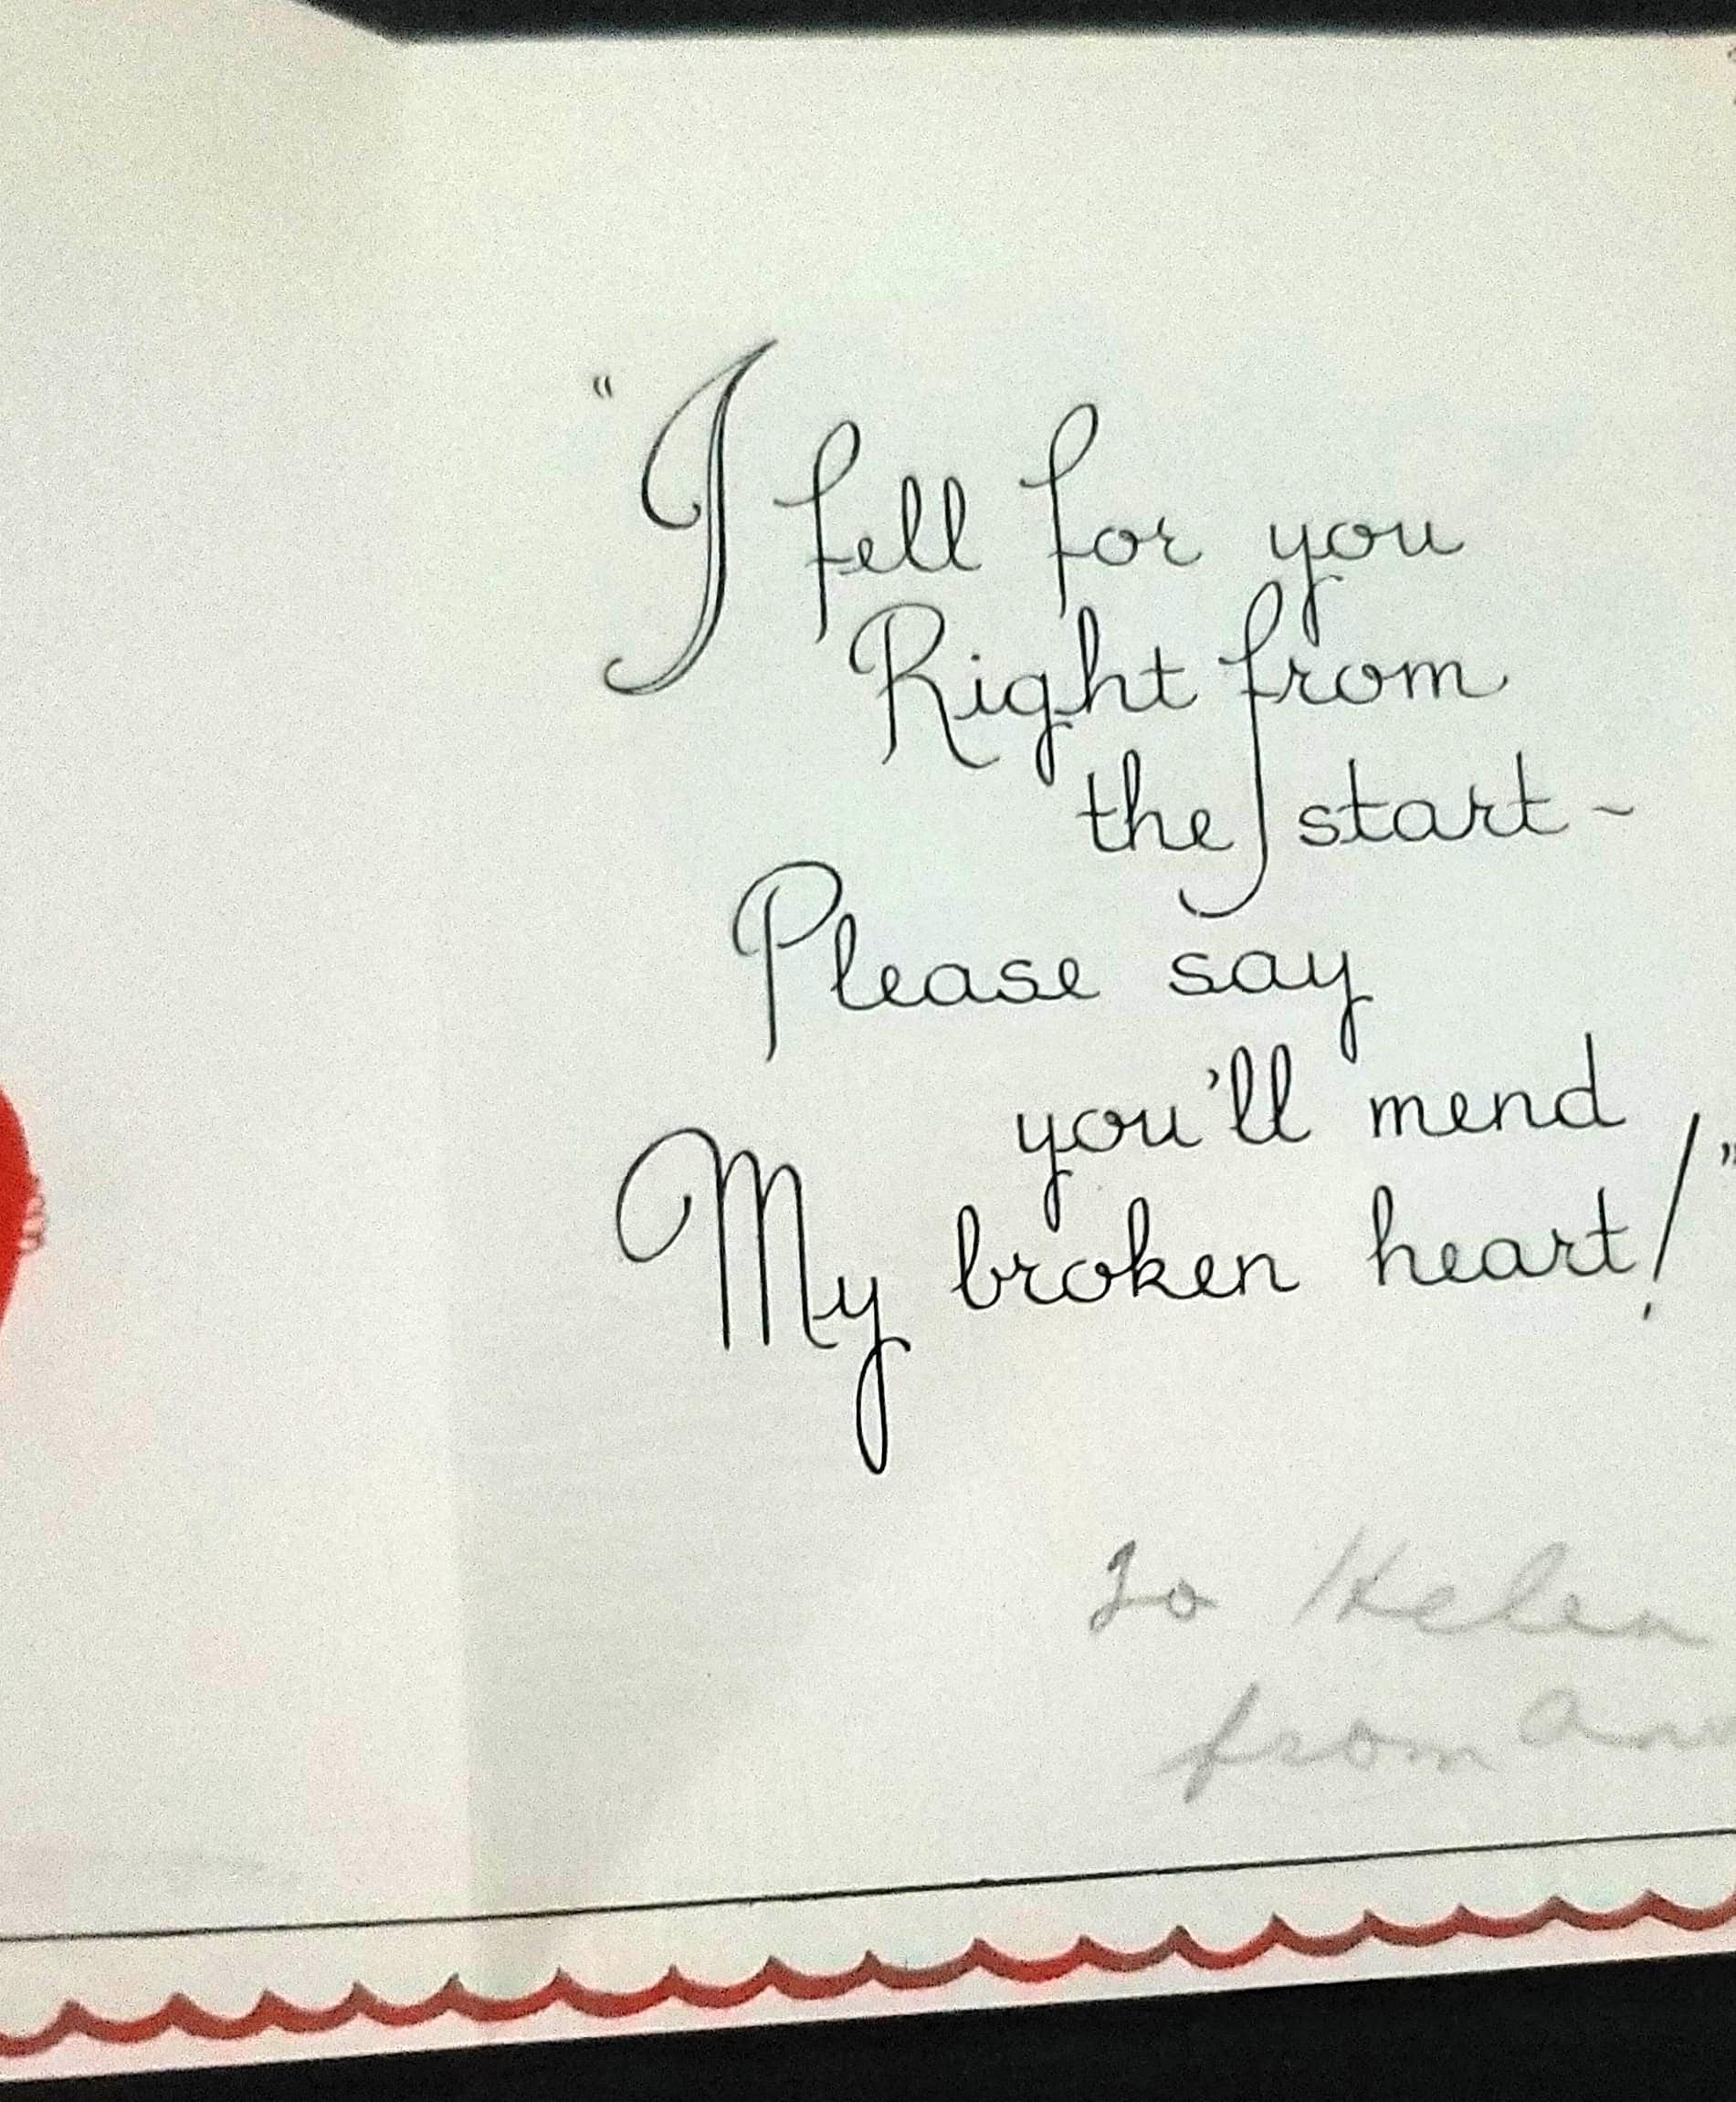 "I fell for you
Right from
the start ~
Please say
you'll mend
My broken heart!"
To Helen
from